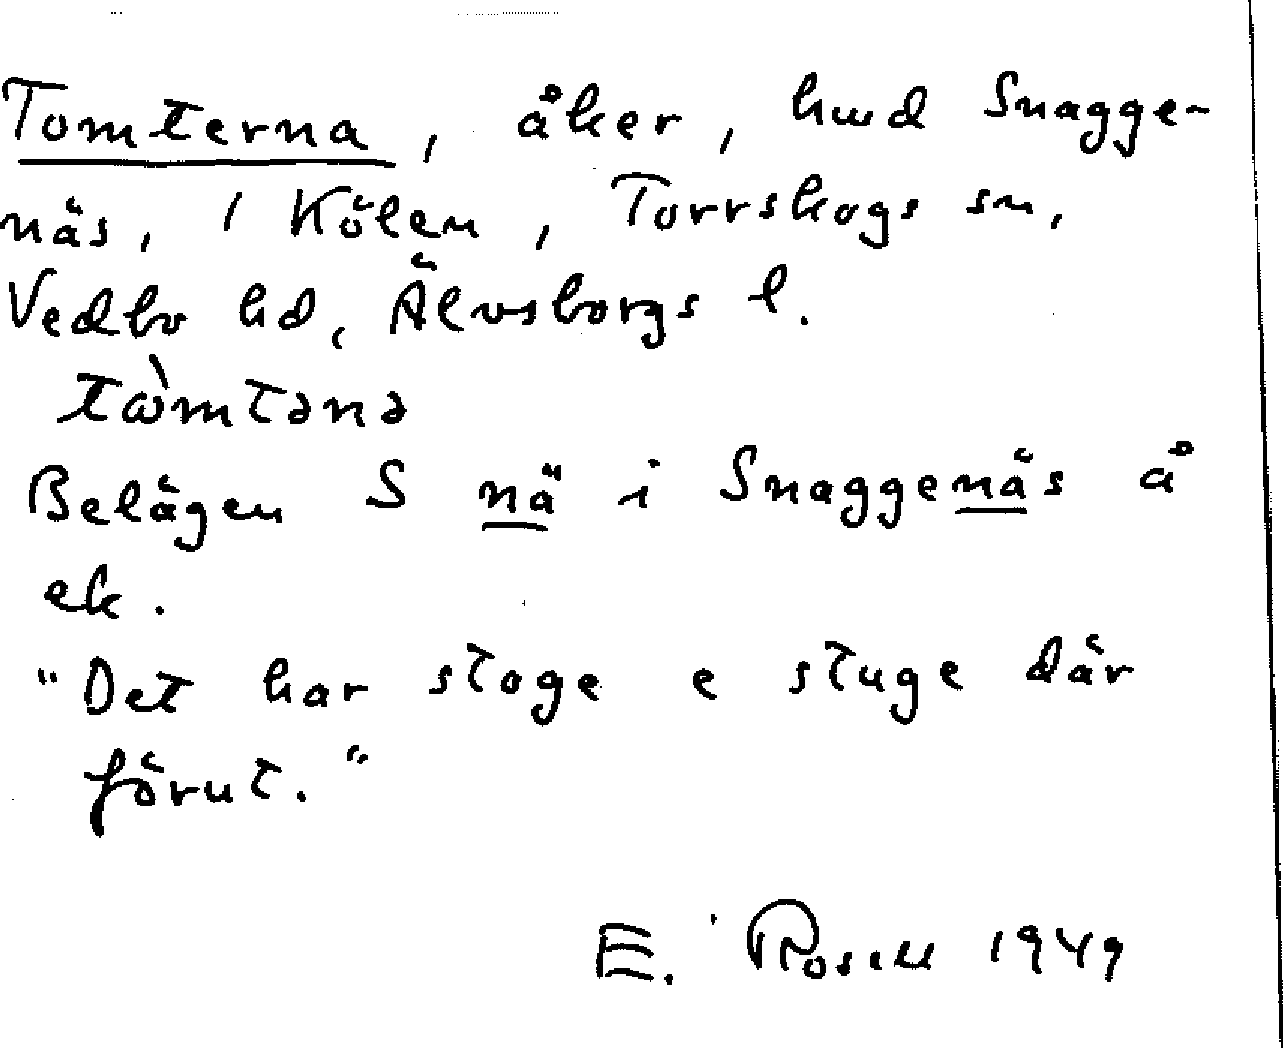 Tomterna, åker, hmd Snagge-
näs, 1 Kölen, Torrskogs sn,
Vedbo hd, Älvsborgs l.
tὼmtənə
Belägen S nä i Snaggenäs å
ek.
"Det har stoge e stuge där
förut."
E. Rosell 1949